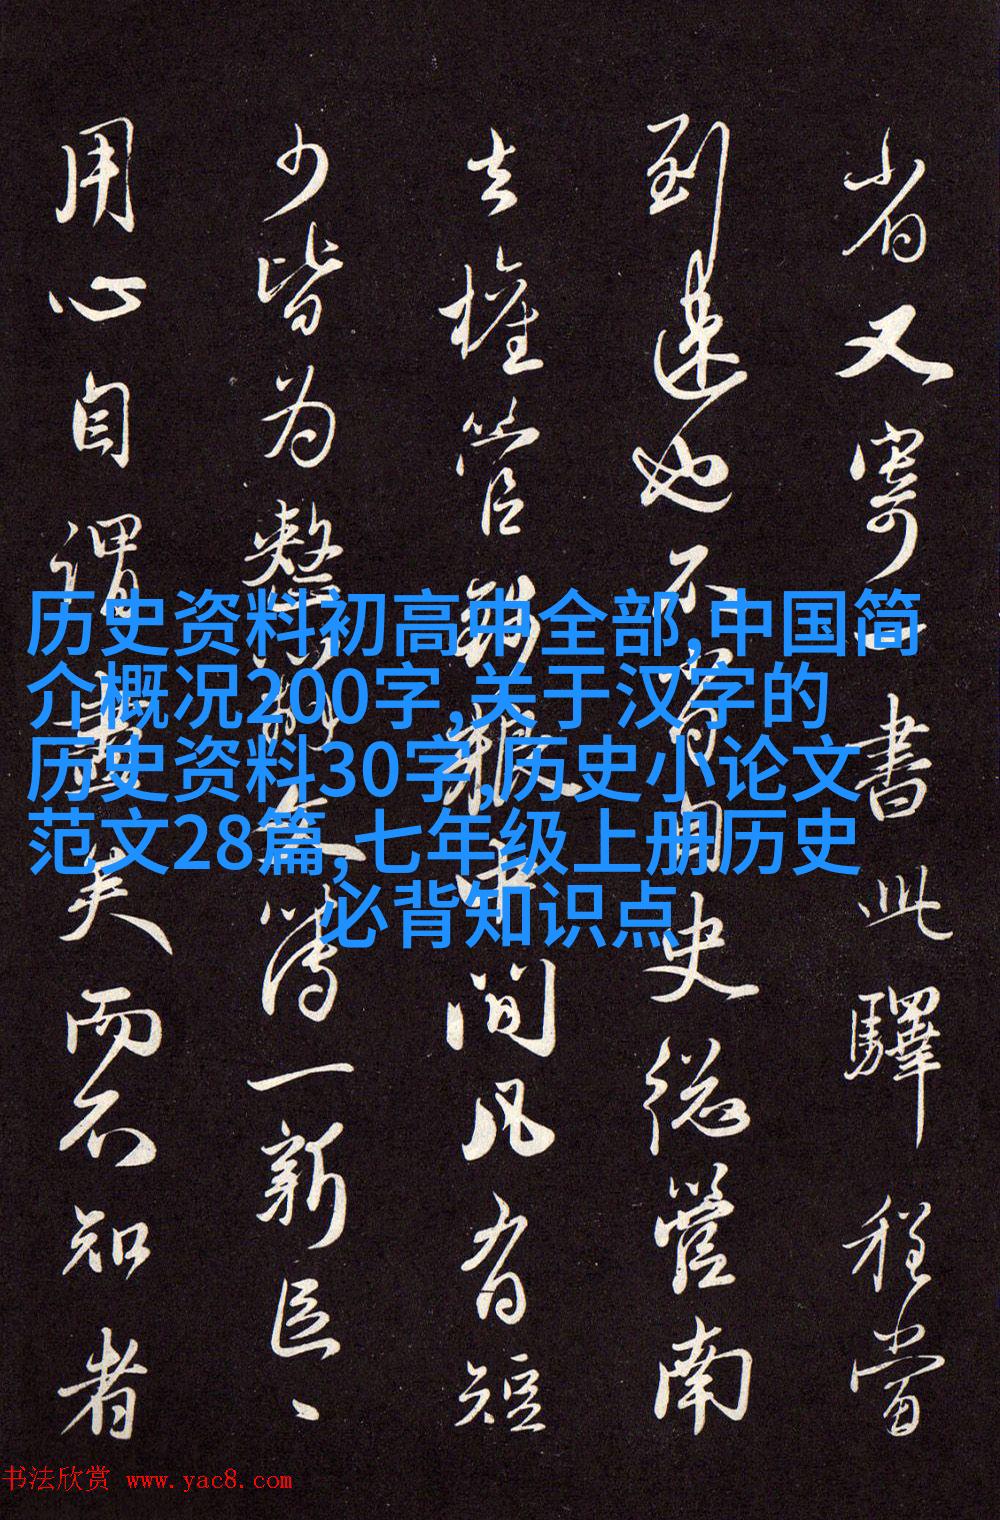 历史资料初高中全部,中国简
介概况200字,关于汉字的
历史资料30字,历史小论文
范文28篇,七年级上册历史
必背知识点
省又寄一書此驛程當
到速也不自史總管南
去權管中间凡有短
少皆为整一新
用心自謂盡矣而不知者
书法欣赏 www.yac8.com